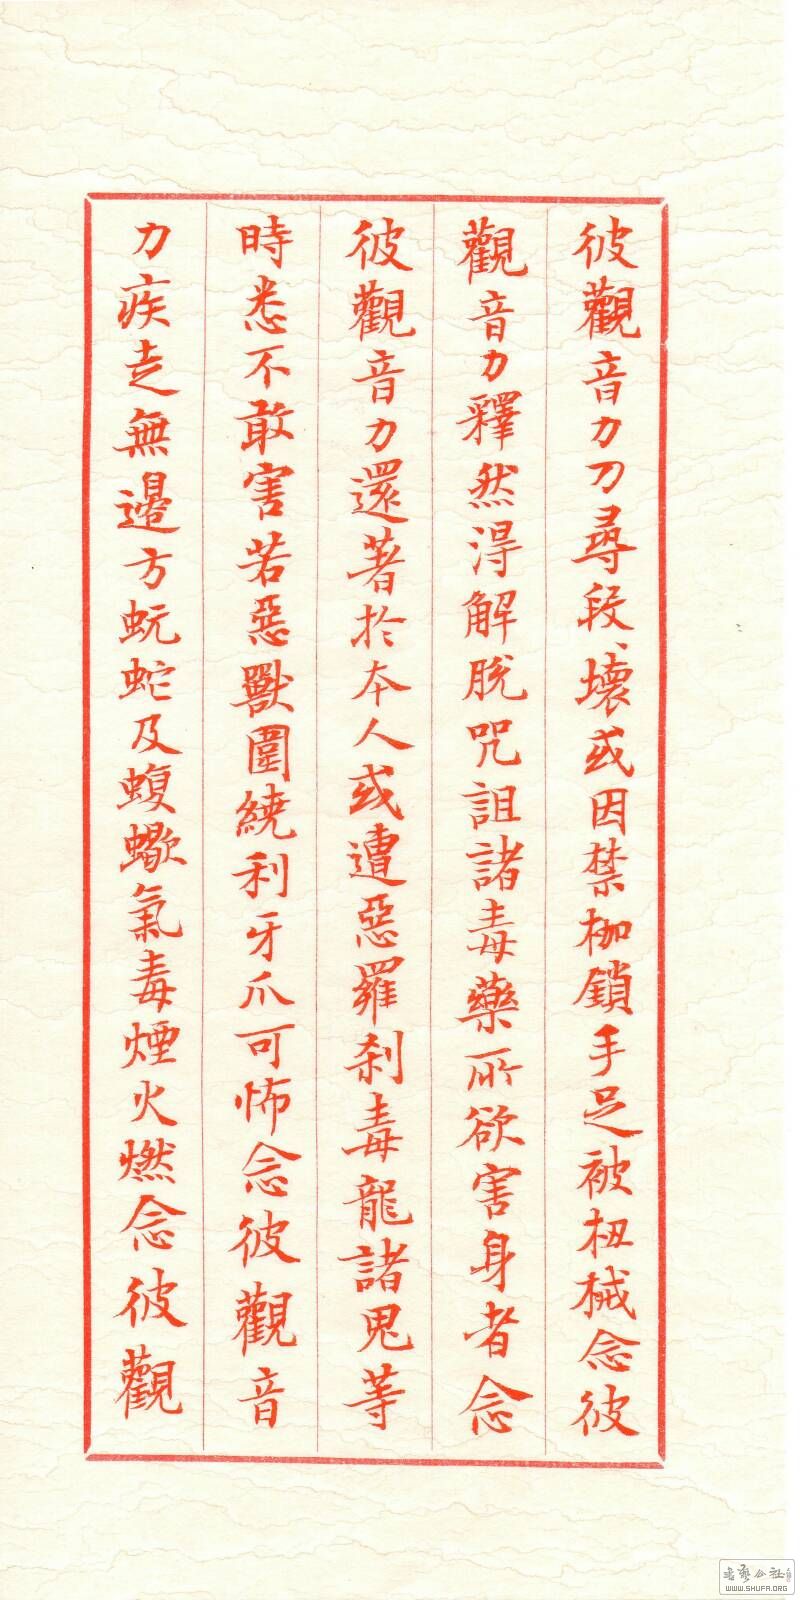 彼觀音力刀尋段、壞或因禁枷鎖手足被杻械念彼
觀音力釋然得解脫咒詛諸毒藥所欲害身者念
彼觀音力還著於本人或遭惡羅剎毒龍諸鬼等
時悉不敢害若惡獸圍繞利牙爪可怖念彼觀音
力疾走無邊方蚖蛇及蝮蠍氣毒煙火燃念彼觀
WWW.SHUFA.ORG